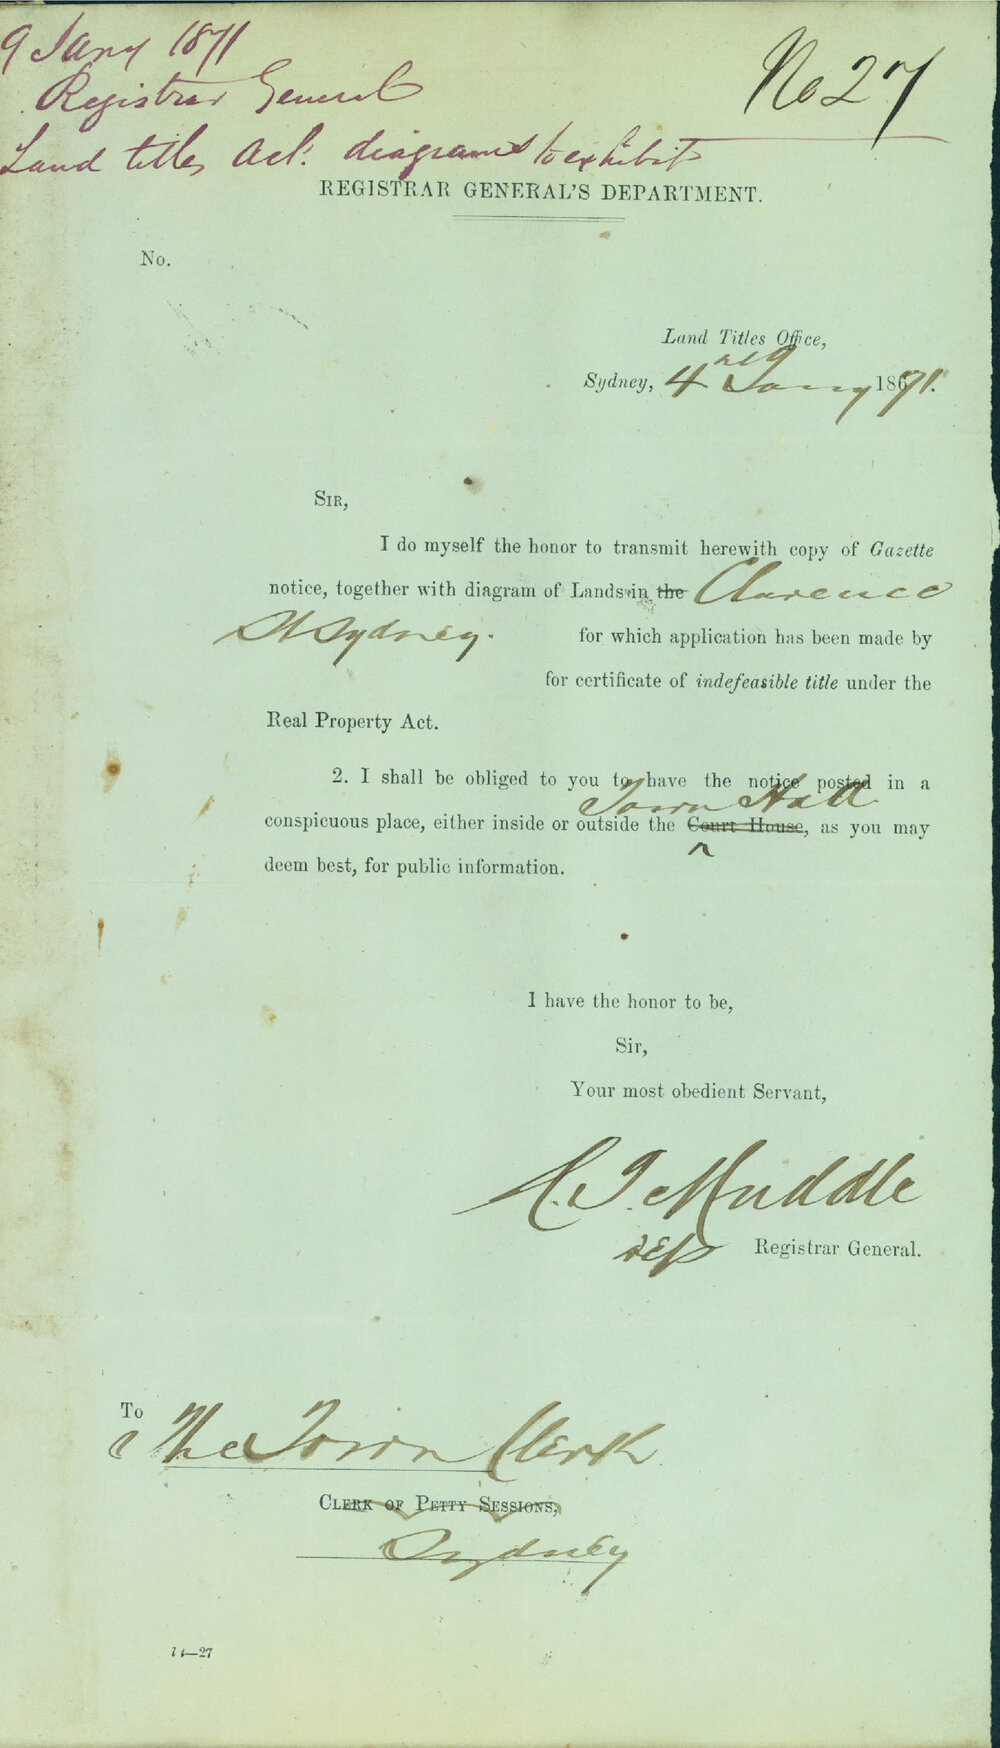 9 Jany 1871
Registrar General
No 27
Land titles Act: diagrams to exhibit
REGISTRAR GENERAL'S DEPARTMENT.
No.
Land Titles Office,
Sydney, 4 Jany 1871.
SIR,
I do myself the honor to transmit herewith copy of Gazette
notice, together with diagram of Lands in the Clarence
St Sydney. for which application has been made by
for certificate of indefeasible title under the
Real Property Act.
2. I shall be obliged to you to have the notice posted in a
Town Hall
conspicuous place, either inside or outside the Court House, as you may
deem best, for public information.
I have the honor to be,
Sir,
Your most obedient Servant,
Muddle
Dep Registrar General.
To
The Town Clerk
CLERK OF PETTY SESSIONS,
Sydney